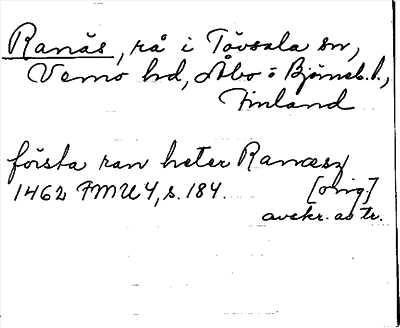 Ranäs, rå i Tövsala sn,
Vemo hd, Åbo o Björneb. l.,
Finland
första ran heter Ranæsz
1462 FMU 4, s. 184. [orig.]
avskr. av tr.